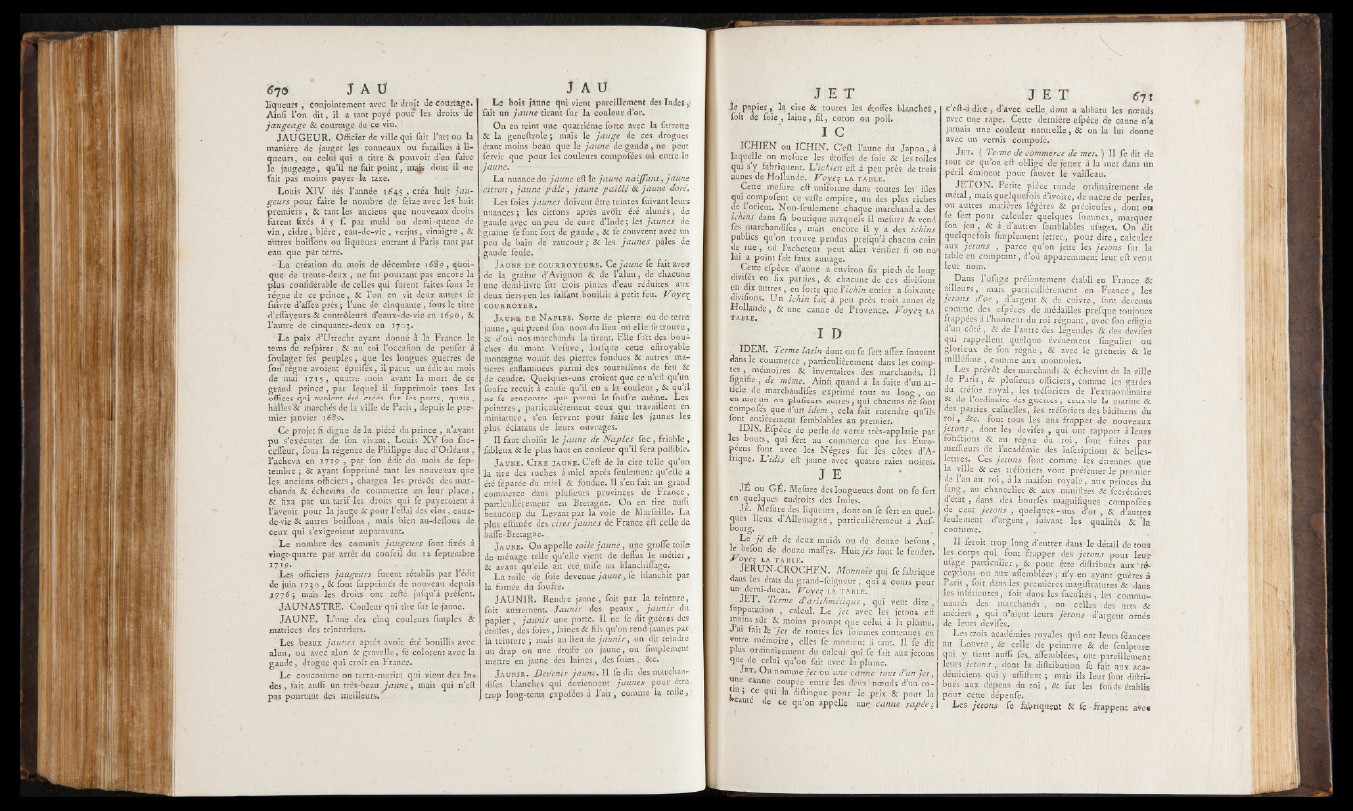 670 JAU
liqueurs , conjointement avec le droit de courtage.
Ainſi l'on dit, il a tant payé pour les droits de
jaugeage & courtage de ce vin.
JAUGEUR. Officier de ville qui fait l'art ou la
manière de jauger les tonneaux ou futailles à li-
queurs, ou celui qui a titre & pouvoir d'en faire
le jaugeage, qu'il ne fait point, mais dont il ne
fait pas moins payer la taxe.
Louis XIV dès l'année 1645, créa huit jau-
geurs pour faire le nombre de ſeize avec les huit
premiers, & tant les anciens que nouveaux droits
furent fixés à 5 ſ. par muid ou demi-queue de
vin, cidre, bière, eau-de-vie, verjus, vinaigre, &
autres boiſſons ou liqueurs entrant à Paris tant par
eau que par terre.
La création du mois de décembre 1689, quoi-
que de trente-deux, ne fut pourtant pas encore la
plus conſidérable de celles qui furent faites ſous le
règne de ce prince, & l'on en vit deux autres ſe
ſuivre d'aſſez près; l'une de cinquante, ſous le titre
d'eſſayeurs & contrôleurs d'eaux-de-vie en 1690, &
l'autre de cinquante-deux en 1703.
La paix d'Utrecht ayant donné à la France le
tems de reſpirer, & au roi l'occaſion de penſer à
ſoulager ſes peuples, que les longues guerres de
ſon règne avoient épuiſés, il parut un édit au mois
de mai 1715, quatre mois avant la mort de ce
grand prince, par lequel il ſupprimoit tous les
offices qui avoient été créés ſur les ports, quais,
halles & marchés de la ville de Paris, depuis le pre-
mier janvier 1689.
Ce projet ſi digne de la piété du prince, n'ayant
pu s'exécuter de ſon vivant, Louis XV ſon ſuc-
ceſſeur, ſous la régence de Philippe duc d'Orléans,
l'acheva en 1719, par ſon édit du mois de ſep-
tembre; & ayant ſupprimé tant les nouveaux que
les anciens officiers, chargea les prévôt des mar-
chands & échevins de commettre en leur place,
& fixa par un tarif les droits qui ſe payeroient à
l'avenir pour la jauge & pour l'eſſai des vins, eaux-
de-vie & autres boiſſons, mais bien au-deſſous de
ceux qui s'exigeoient auparavant.
Le nombre des commis jaugeurs ſont fixés à
vingt-quatre par arrêt du conſeil du 12 ſeptembre
1719.
Les officiers jaugeurs furent rétablis par l'édit
de juin 1730, & ſont ſupprimés de nouveau depuis
1776; mais les droits ont reſté juſqu'à préſent.
JAUNASTRE. Couleur qui tire ſur le jaune.
JAUNE. L'une des cinq couleurs ſimples &
matrices des teinturiers.
Les beaux jaunes après avoir été bouillis avec
alun, ou avec alun & gravelle, ſe colorent avec la
gaude, drogue qui croît en France.
Le concomme ou terra-merita qui vient des In-
des, fait auſſi un très-beau jaune, mais qui n'eſt
pas pourtant des meilleurs.
JAU
Le bois jaune qui vient pareillement des Indes,
fait un jaune tirant ſur la couleur d'or.
On en teint une quatrième ſorte avec la ſarrette
& la geneſtrole; mais le jauge de ces drogues
étant moins beau que le jaune de gaude, ne peut
ſervir que pour les couleurs compoſées où entre le
jaune.
La nuance de jaune eſt le jaune naiſſant, jaune
citron, jaune pâle, jaune paillé & jaune doré.
Les ſoies jaunes doivent être teintes ſuivant leurs
nuances; les citrons après avoir été alunés, de
gaude avec un peu de cuve d'Inde; les jaunes de
graine ſe font fort de gaude, & ſe couvrent avec un
peu de bain de raucour; & les jaunes pâles de
gaude ſeule.
JAUNE DE COURROYEURS. Ce jaune ſe fait avec
de la graine d'Avignon & de l'alun, de chacune
une demi-livre ſur trois pintes d'eau réduites aux
deux tiers en les faiſant bouillir à petit feu. Voyez
COURROYER.
JAUNE DE NAPLES. Sorte de pierre ou de terre
jaune, qui prend ſon nom du lieu où elle ſe trouve,
& d'où nos marchands la tirent. Elle ſort des bou-
ches du mont Veſuve, lorſque cette effroyable
montagne vomit des pierres fondues & autres ma-
tières enflammées parmi des tourbillons de feu &
de cendre. Quelques-uns croient que ce n'eſt qu'un
ſoufre recuit à cauſe qu'il en a la couleur, & qu'il
ne ſe rencontre que parmi le ſoufre même. Les
peintres, particulièrement ceux qui travaillent en
miniature, s'en ſervent pour faire les jaunes les
plus éclatans de leurs ouvrages.
Il faut choiſir le jaune de Naples ſec, friable,
ſableux & le plus haut en couleur qu'il ſera poſſible.
JAUNE. CIRE JAUNE. C'eſt de la cire telle qu'on
la tire des ruches à miel après ſeulement qu'elle a
été ſéparée du miel & fondue. Il s'en fait un grand
commerce dans pluſieurs provinces de France,
particulièrement en Bretagne. On en tire auſſi
beaucoup du Levant par la voie de Marſeille. La
plus eſtimée des cires jaunes de France eſt celle de
baſſe-Bretagne.
JAUNE. On appelle toile jaune, une groſſe toile
de ménage telle qu'elle vient de deſſus le métier,
& avant qu'elle ait été miſe au blanchiſſage.
La toile de ſoie devenue jaune, ſe blanchit par
la fumée du ſoufre.
JAUNIR. Rendre jaune, ſoit par la teinture,
ſoit autrement. Jaunir des peaux, jaunir du
papier, jaunir une porte. Il ne ſe dit guères des
étoffes, des ſoies, laines & fils qu'on rend jaunes par
la teinture; mais au lieu de jaunir, on dit teindre
un drap ou une étoffe en jaune, ou ſimplement
mettre en jaune des laines, des ſoies, &c.
JAUNIR. Devenir jaune. Il ſe dit des marchan-
diſes blanches qui deviennent jaunes pour être
trop long-tems expoſées à l'air, comme la toile,
JET
le papier, la cire & toutes les étoffes blanches,
ſoit de ſoie, laine, fil, coton ou poil.
I C
ICHIEN ou ICHIN. C'eſt l'aune du Japon, à
laquelle on meſure les étoffes de ſoie & les toiles
qui s'y fabriquent. L'ichien eſt à peu près de trois
aunes de Hollande. Voyez LA TABLE.
Cette meſure eſt uniforme dans toutes les iſles
qui compoſent ce vaſte empire, un des plus riches
de l'orient. Non-ſeulement chaque marchand a des
ichins dans ſa boutique auxquels il meſure & vend
ſes marchandiſes, mais encore il y a des ichins
publics qu'on trouve pendus preſqu'à chacun coin
de rue, où l'acheteur peut aller vérifier ſi on ne
lui a point fait faux aunage.
Cette eſpèce d'aune a environ ſix pieds de long
diviſés en ſix parties, & chacune de ces diviſions
en dix autres, en ſorte que l'ichin entier a ſoixante
diviſions. Un ichin fait à peu près trois aunes de
Hollande, & une canne de Provence. Voyez LA
TABLE.
I D
IDEM. Terme latin dont on ſe ſert aſſez ſouvent
dans le commerce, particulièrement dans les comp-
tes, mémoires & inventaires des marchands. Il
ſignifie, de même. Ainſi quand à la ſuite d'un ar-
ticle de marchandiſes exprimé tout au long, on
en met un ou pluſieurs autres, qui chacuns ne ſont
compoſés que d'un idem, cela fait entendre qu'ils
ſont entièrement ſemblables au premier.
IDIS. Eſpèce de perle de verre très-applatie par
les bouts, qui ſert au commerce que les Euro-
péens font avec les Nègres ſur les côtes d'A-
frique. L'idis eſt jaune avec quatre raies noires.
J E
JÉ ou GÉ. Meſure des longueurs dont on ſe ſert
en quelques endroits des Indes.
JÉ. Meſure des liqueurs, dont on ſe ſert en quel-
ques lieux d'Allemagne, particulièrement à Auſ-
bourg.
Le jé eſt de deux muids ou de douze beſons,
le beſon de douze maſſes. Huit jés font le feoder.
Voyez LA TABLE.
JERUN-CROCHEN. Monnoie qui ſe fabrique
dans les états du grand-ſeigneur, qui a cours pour
un demi-ducat. Voyez LA TABLE.
JET. Terme d'arithmétique, qui veut dire,
ſupputation, calcul. Le jet avec les jetons eſt
moins sûr & moins prompt que celui à la plume.
J'ai fait le jet de toutes les ſommes contenues en
votre mémoire, elles ſe montent à tant. Il ſe dit
plus ordinairement du calcul qui ſe fait aux jetons
que de celui qu'on fait avec la plume.
JET. On nomme jet ou une canne tout d'un jet,
une canne coupée entre les deux nœuds d'un ro-
tin; ce qui la diſtingue pour le prix & pour la
beauté de ce qu'on appelle une canne rapée;
JET 671
c'eſt-à-dire, d'avec celle dont a abbatu les nœuds
avec une rape. Cette dernière eſpèce de canne n'a
jamais une couleur naturelle, & on la lui donne
avec un vernis compoſé.
JET. (Terme de commerce de mer.) Il ſe dit de
tout ce qu'on eſt obligé de jetter à la mer dans un
péril éminent pour ſauver le vaiſſeau.
JETON. Petite pièce ronde ordinairement de
métal, mais quelquefois d'ivoire, de nacre de perles,
ou autres matières légères & précieuſes, dont on
ſe ſert pour calculer quelques ſommes, marquer
ſon jeu, & à d'autres ſemblables uſages. On dit
quelquefois ſimplement jetter, pour dire, calculer
aux jetons, parce qu'on jette les jetons ſur la
table en comptant, d'où apparemment leur eſt venu
leur nom.
Dans l'uſage préſentement établi en France &
ailleurs, mais particulièrement en France, les
jetons d'or, d'argent & de cuivre, ſont devenus
comme des eſpèces de médailles preſque toujours
frappées à l'honneur du roi régnant, avec ſon effigie
d'un côté, & de l'autre des légendes & des deviſes
qui rappellent quelque événement ſingulier ou
glorieux de ſon règne, & avec le grenetis & le
milléſime, comme aux monnoies.
Les prévôt des marchands & échevins de la ville
de Paris, & pluſieurs officiers, comme les gardes
du tréſor royal, les tréſoriers de l'extraordinaire
& de l'ordinaire des guerres, ceux de la marine &
des parties caſuelles, les tréſoriers des bâtimens du
roi, &c. font tous les ans frapper de nouveaux
jetons, dont les deviſes, qui ont rapport à leurs
fonctions & au règne du roi, ſont faites par
meſſieurs de l'académie des inſcriptions & belles-
lettres. Ces jetons ſont comme les étrennes que
la ville & ces tréſoriers vont préſenter le premier
de l'an au roi, à la maiſon royale, aux princes du
ſang, au chancelier & aux miniſtres & ſecrétaires
d'état, dans des bourſes magnifiques compoſées
de cent jetons, quelques-uns d'or, & d'autres
ſeulement d'argent, ſuivant les qualités & la
coutume.
Il ſeroit trop long d'entrer dans le détail de tous
les corps qui font frapper des jetons pour leur
uſage particulier, & pour être diſtribués aux ré-
ceptions ou aux aſſemblées; n'y en ayant guères à
Paris, ſoit dans les premières magiſtratures & dans
les inférieures, ſoit dans les facultés, les commu-
nautés des marchands, ou celles des arts &
métiers, qui n'aient leurs jetons d'argent ornés
de leurs deviſes.
Les trois académies royales qui ont leurs ſéances
au Louvre, & celle de peinture & de ſculpture
qui y tient auſſi ſes aſſemblées, ont pareillement
leurs jetons, dont la diſtribution ſe fait aux aca-
démiciens qui y aſſiſtent; mais ils leur ſont diſtri-
bués aux dépens du roi, & ſur les fonds établis
pour cette dépenſe.
Les jetons ſe fabriquent & ſe frappent avec